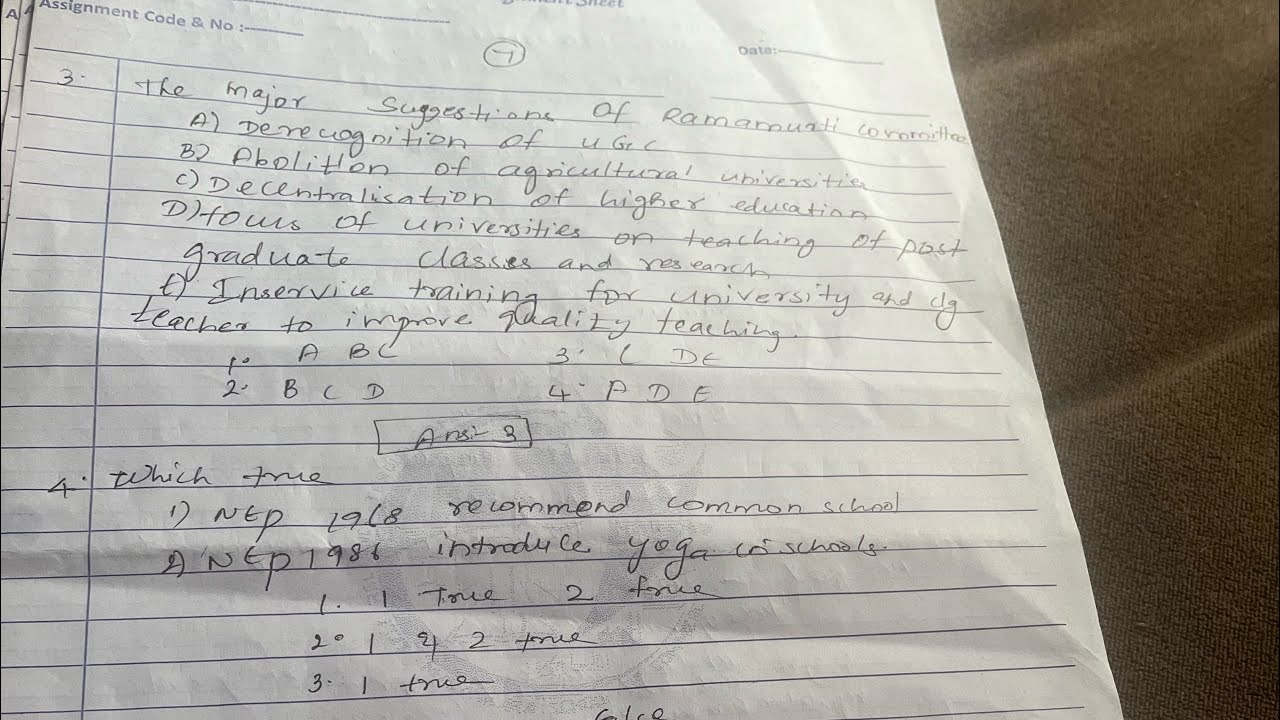 Sheet
Assignment Code & No :-
Date:-
7
3. The major suggestions of Ramamurti committee
A) Derecognition of UGC
B) Abolition of agricultural universities
C) Decentralisation of higher education
D) focus of universities on teaching of post
graduate classes and research
E) Inservice training for university and clg
teacher to improve quality teaching.
1. A B C 3. C D E
2. B C D 4. A D E
Ans:- 3
4. Which true
1) NEP 1968 recommend common school
2) NEP 1986 introduce yoga in schools.
1. 1 True 2 true
2. 1 & 2 true
3. 1 true
false